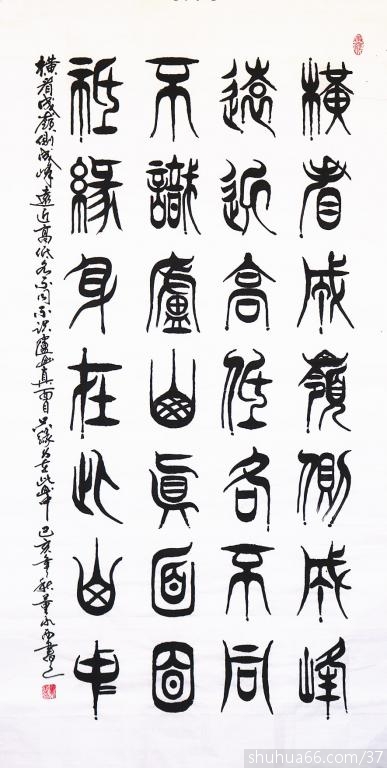 橫看成嶺側成峰
遠近高低各不同
不識盧山真面目
祗緣身在此山中
橫看成嶺側成峰遠近高低各不同不识盧山真面目只緣身在此山中 己亥年秋董書之
shuhua66.com/37